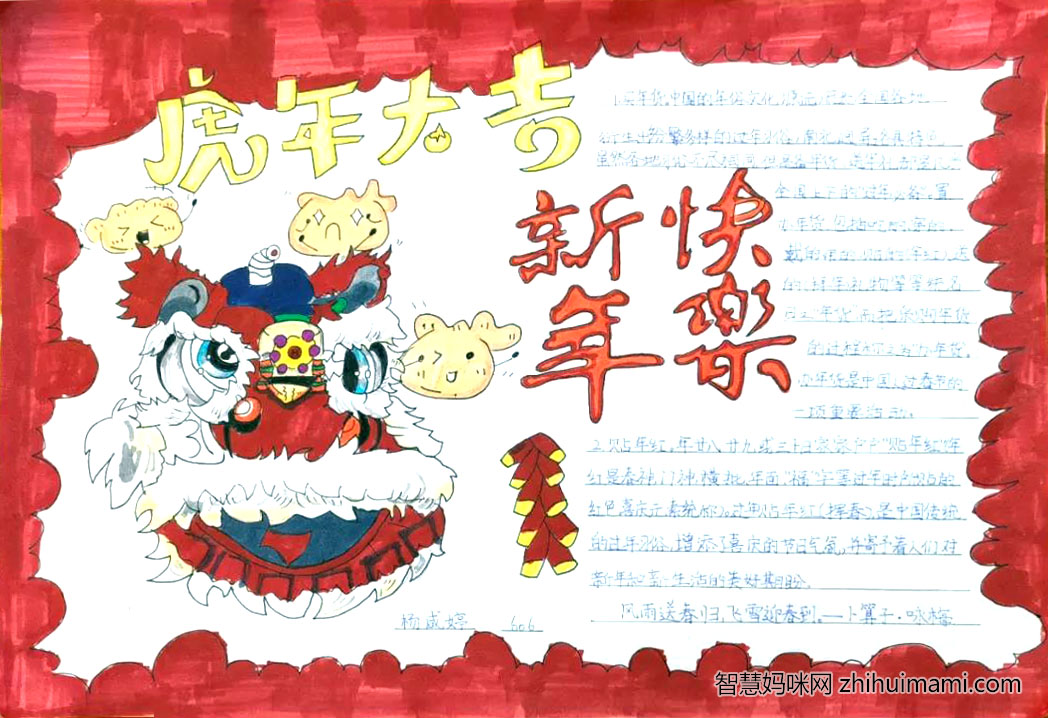 虎年大吉
新年
快樂
1.买年货,中国的年俗文化,源远
全国各地
衍生出纷繁多样的过年习俗,南北迥异,各具特色。
虽然各地习俗不尽相同,但是备年货、送年礼
全国上下的"过年必备"。置
办年货,包括吃的、穿的、
戴的、用的、贴的(年红)、送
的(拜年)礼物等等,统名
曰之"年货",而把采购年货
的过程称之为"办年货"。
办年货是中国人过春节的
一项重要活动。
2.贴年红,年廿八廿九或三十日家家户户"贴年红"(年
红是春神、门神、横批、年画、"福"字等过年时所贴的
红色喜庆元素统称)。过年贴年红(挥春),是中国传统
的过年习俗,增添了喜庆的节日气氛,并寄予着人们对
新年和新生活的美好期盼。
风雨送春归,飞雪迎春到。—卜算子·咏梅
杨成婷 606
智慧妈咪网 zhihuimami.com